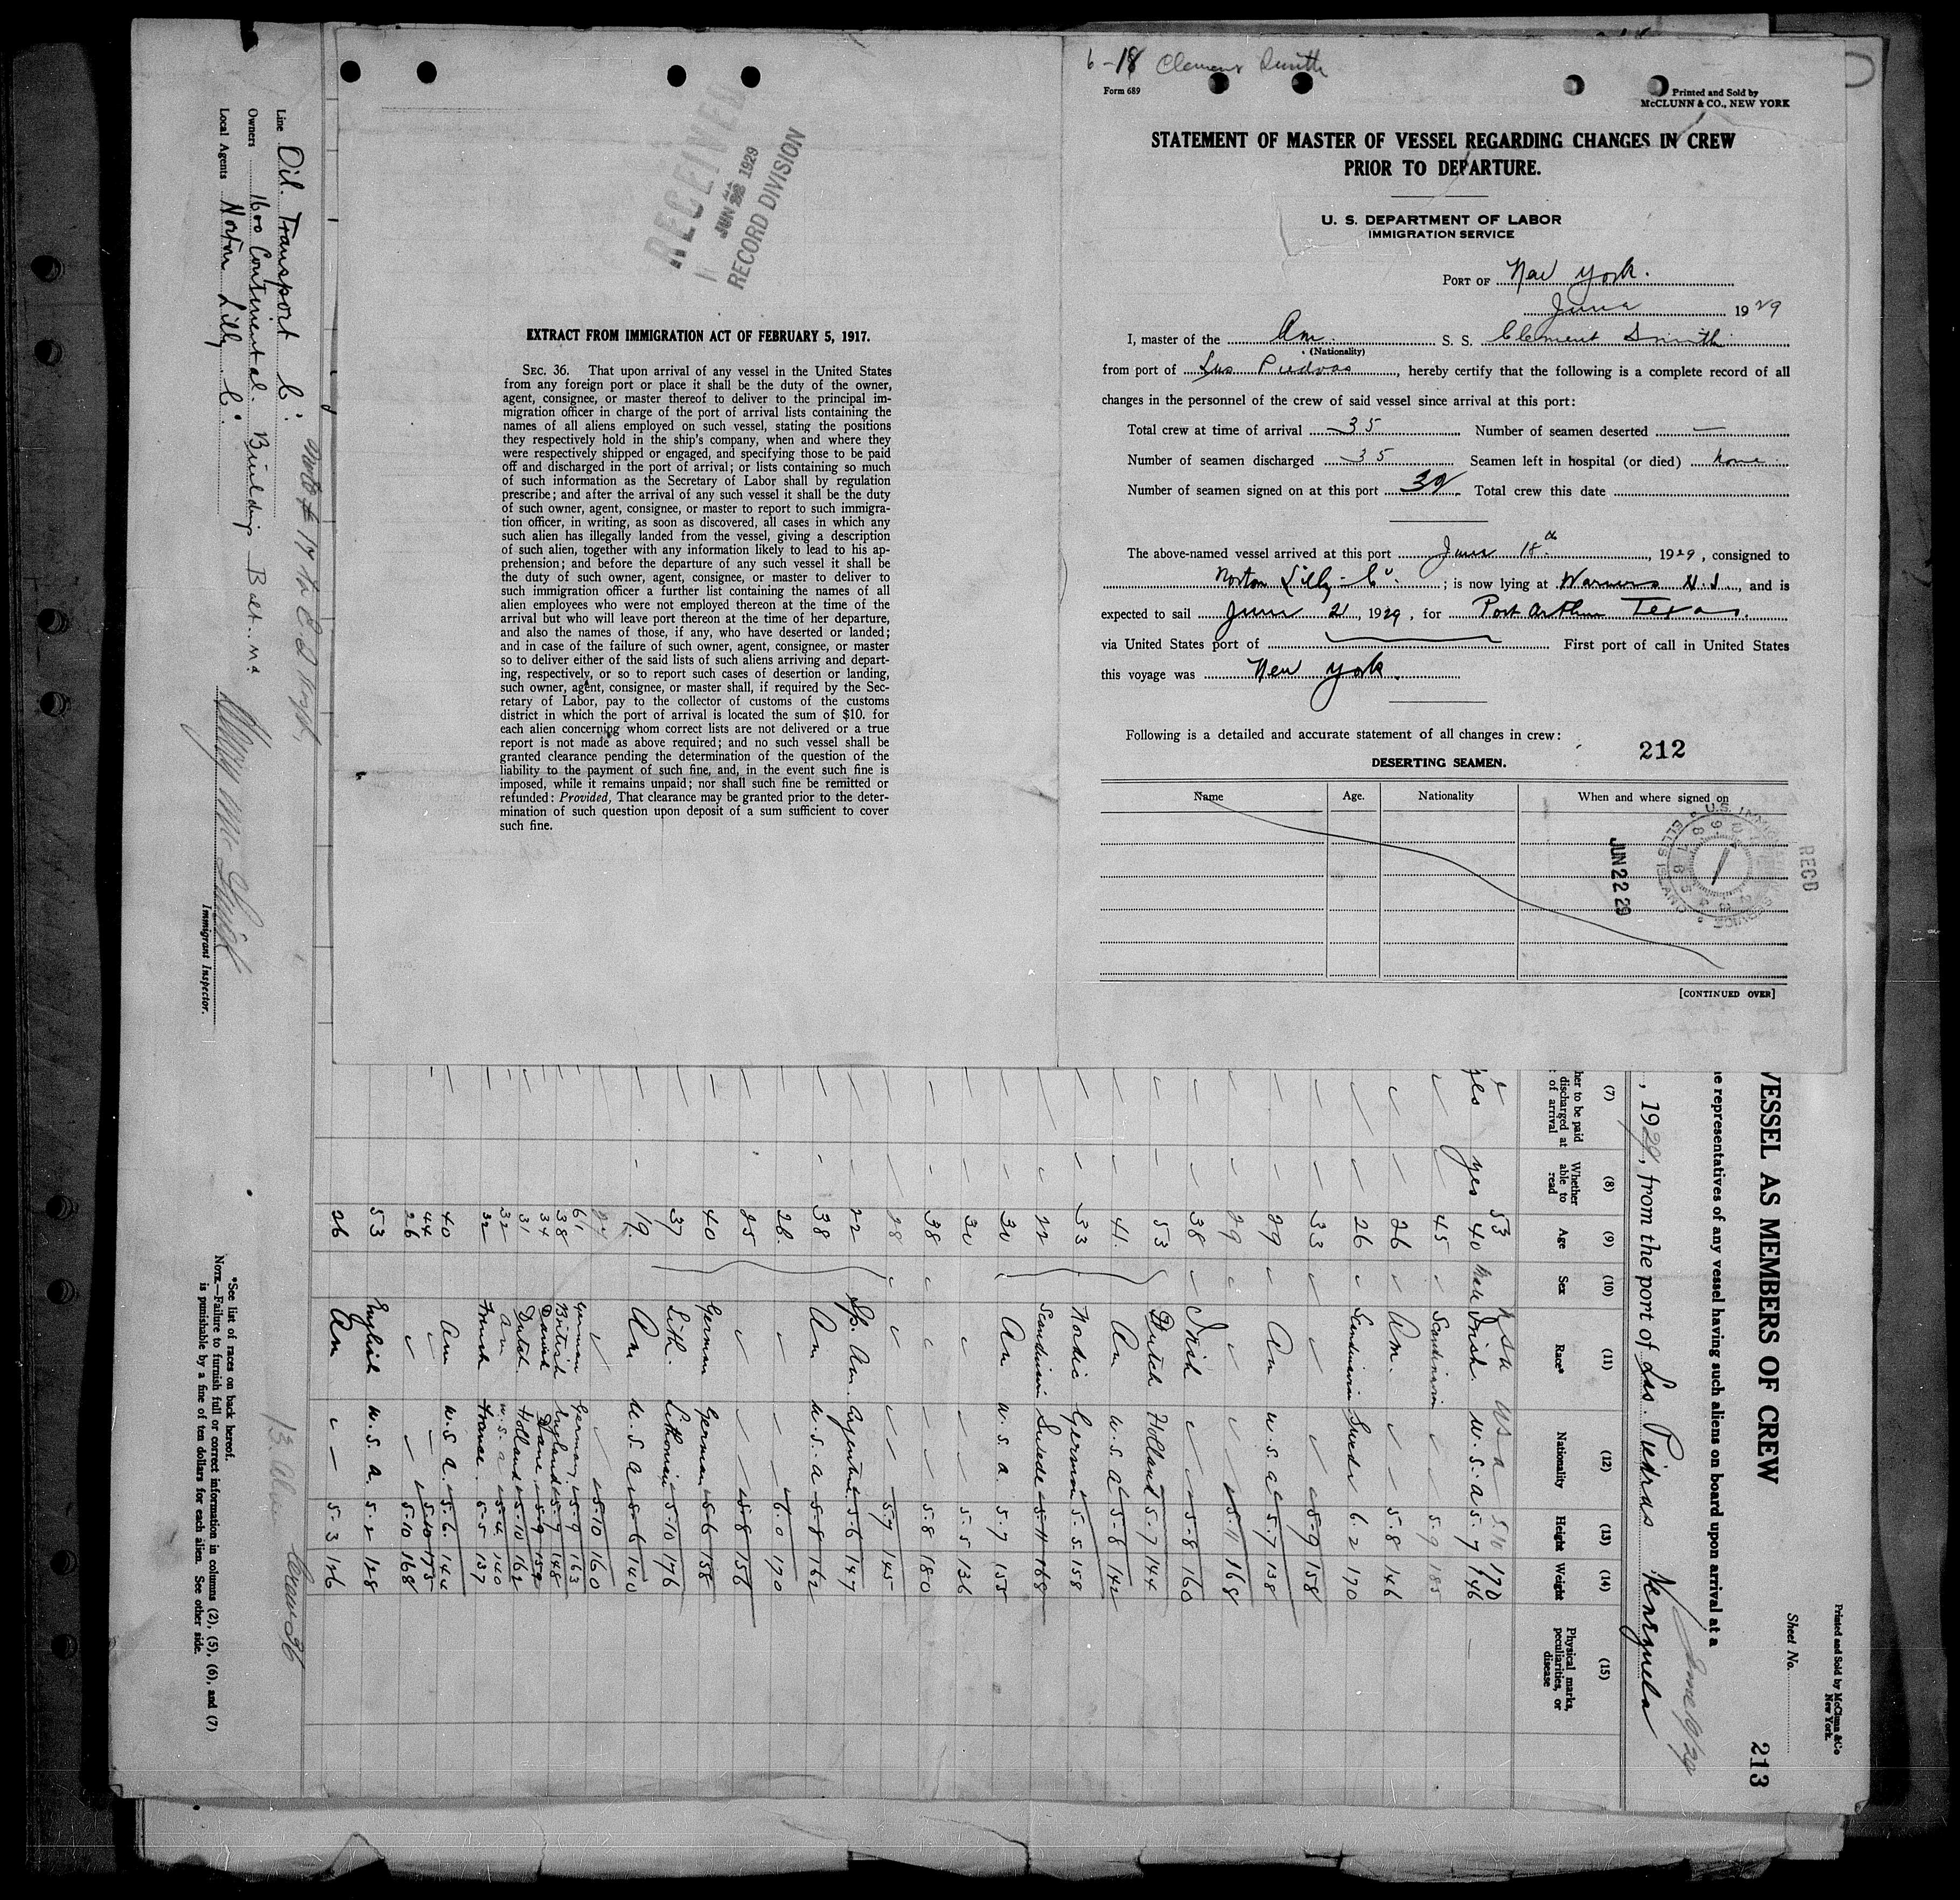 6-18 Clement Smith
Form 689
Printed and Sold by
McCLUNN & CO., NEW YORK
STATEMENT OF MASTER OF VESSEL REGARDING CHANGES IN CREW
PRIOR TO DEPARTURE.
U. S. DEPARTMENT OF LABOR
IMMIGRATION SERVICE
PORT OF New York.
June 1929
I, master of the Am. S. S. Clement Smith
(Nationality)
from port of Las Piedras, hereby certify that the following is a complete record of all
changes in the personnel of the crew of said vessel since arrival at this port:
Total crew at time of arrival 35 Number of seamen deserted —
Number of seamen discharged 35 Seamen left in hospital (or died) none
Number of seamen signed on at this port Total crew this date
The above-named vessel arrived at this port June 18th, 1929, consigned to
Norton Lilly Co.; is now lying at Warners N.J., and is
expected to sail June 21, 1929, for Port Arthur Texas.
via United States port of First port of call in United States
this voyage was New York.
Following is a detailed and accurate statement of all changes in crew:
212
DESERTING SEAMEN.
Name Age. Nationality When and where signed on
RECD
JUN 22 29
U.S. IMMIGRATION SERVICE
ELLIS ISLAND
[CONTINUED OVER]
RECEIVED
JUN 1929
RECORD DIVISION
EXTRACT FROM IMMIGRATION ACT OF FEBRUARY 5, 1917.
SEC. 36. That upon arrival of any vessel in the United States
from any foreign port or place it shall be the duty of the owner,
agent, consignee, or master thereof to deliver to the principal im-
migration officer in charge of the port of arrival lists containing the
names of all aliens employed on such vessel, stating the positions
they respectively hold in the ship's company, when and where they
were respectively shipped or engaged, and specifying those to be paid
off and discharged in the port of arrival; or lists containing so much
of such information as the Secretary of Labor shall by regulation
prescribe; and after the arrival of any such vessel it shall be the duty
of such owner, agent, consignee, or master to report to such immigra-
tion officer, in writing, as soon as discovered, all cases in which any
such alien has illegally landed from the vessel, giving a description
of such alien, together with any information likely to lead to his ap-
prehension; and before the departure of any such vessel it shall be
the duty of such owner, agent, consignee, or master to deliver to
such immigration officer a further list containing the names of all
alien employees who were not employed thereon at the time of the
arrival but who will leave port thereon at the time of her departure,
and also the names of those, if any, who have deserted or landed;
and in case of the failure of such owner, agent, consignee, or master
so to deliver either of the said lists of such aliens arriving and depart-
ing, respectively, or so to report such cases of desertion or landing,
such owner, agent, consignee, or master shall, if required by the Sec-
retary of Labor, pay to the collector of customs of the customs
district in which the port of arrival is located the sum of $10. for
each alien concerning whom correct lists are not delivered or a true
report is not made as above required; and no such vessel shall be
granted clearance pending the determination of the question of the
liability to the payment of such fine, and, in the event such fine is
imposed, while it remains unpaid; nor shall such fine be remitted or
refunded: Provided, That clearance may be granted prior to the deter-
mination of such question upon deposit of a sum sufficient to cover
such fine.
Printed and Sold by McClunn & Co
New York.
Sheet No.
213
VESSEL AS MEMBERS OF CREW
e representatives of any vessel having such aliens on board upon arrival at a
June 19/29
, 1929, from the port of Las. Piedras Venezuela
(7) (8) (9) (10) (11) (12) (13) (14) (15)
her to be paid discharged at of arrival
Whether able to read
Age
Sex
Race*
Nationality
Height
Weight
Physical marks, peculiarities, or disease
53 USA 5.10 170
yes yes 40 Male Irish U.S.A 5.7 146
45 Scandinavian 5.9 185
26 Am. 5.8 146
26 Scandinavian Swede 6.2 170
33 5-9 158
29 Am U.S.A 5.7 138
29 5.11 168
38 Irish 5-8 160
53 Dutch Holland 5-7 144
41. Am U.S.A 5-8 142
33 Nordic German 5-5 158
22 Scandinavian Swede 5-11 168
30 An U.S.A. 5-7 155
30 5.5 136
38 5.8 180
28 5-7 145
22 Sp. Am. Argentine 5-6 147
38 Am U.S.A 5-8 162
28 6.0 170
25 5-8 156
40 German German 5-6 158
37 Lith. Lithonian 5-10 176
19. Am U.S.A 5-6 140
5-10 160
61 German Germany 5-9 163
38 British England 5-9 148
34 Danish Dane 5-9 159
31 Dutch Holland 5-10 162
32 An U.S.A 5-4 140
32 French France 5-5 137
40 Am U.S.A. 5-6 144
44 5-10 175
26 5-10 168
53 English U.S.A. 5-2 128
26 Am 5-3 126
Line Oil Transport Co.
Owners 1600 Continental Building Balt. Md
Local Agents Norton Lilly Co.
Immigrant Inspector.
13 Alien Crew 36
*See list of races on back hereof.
NOTE.—Failure to furnish full or correct information in columns (2), (5), (6), and (7)
is punishable by a fine of ten dollars for each alien. See other side.